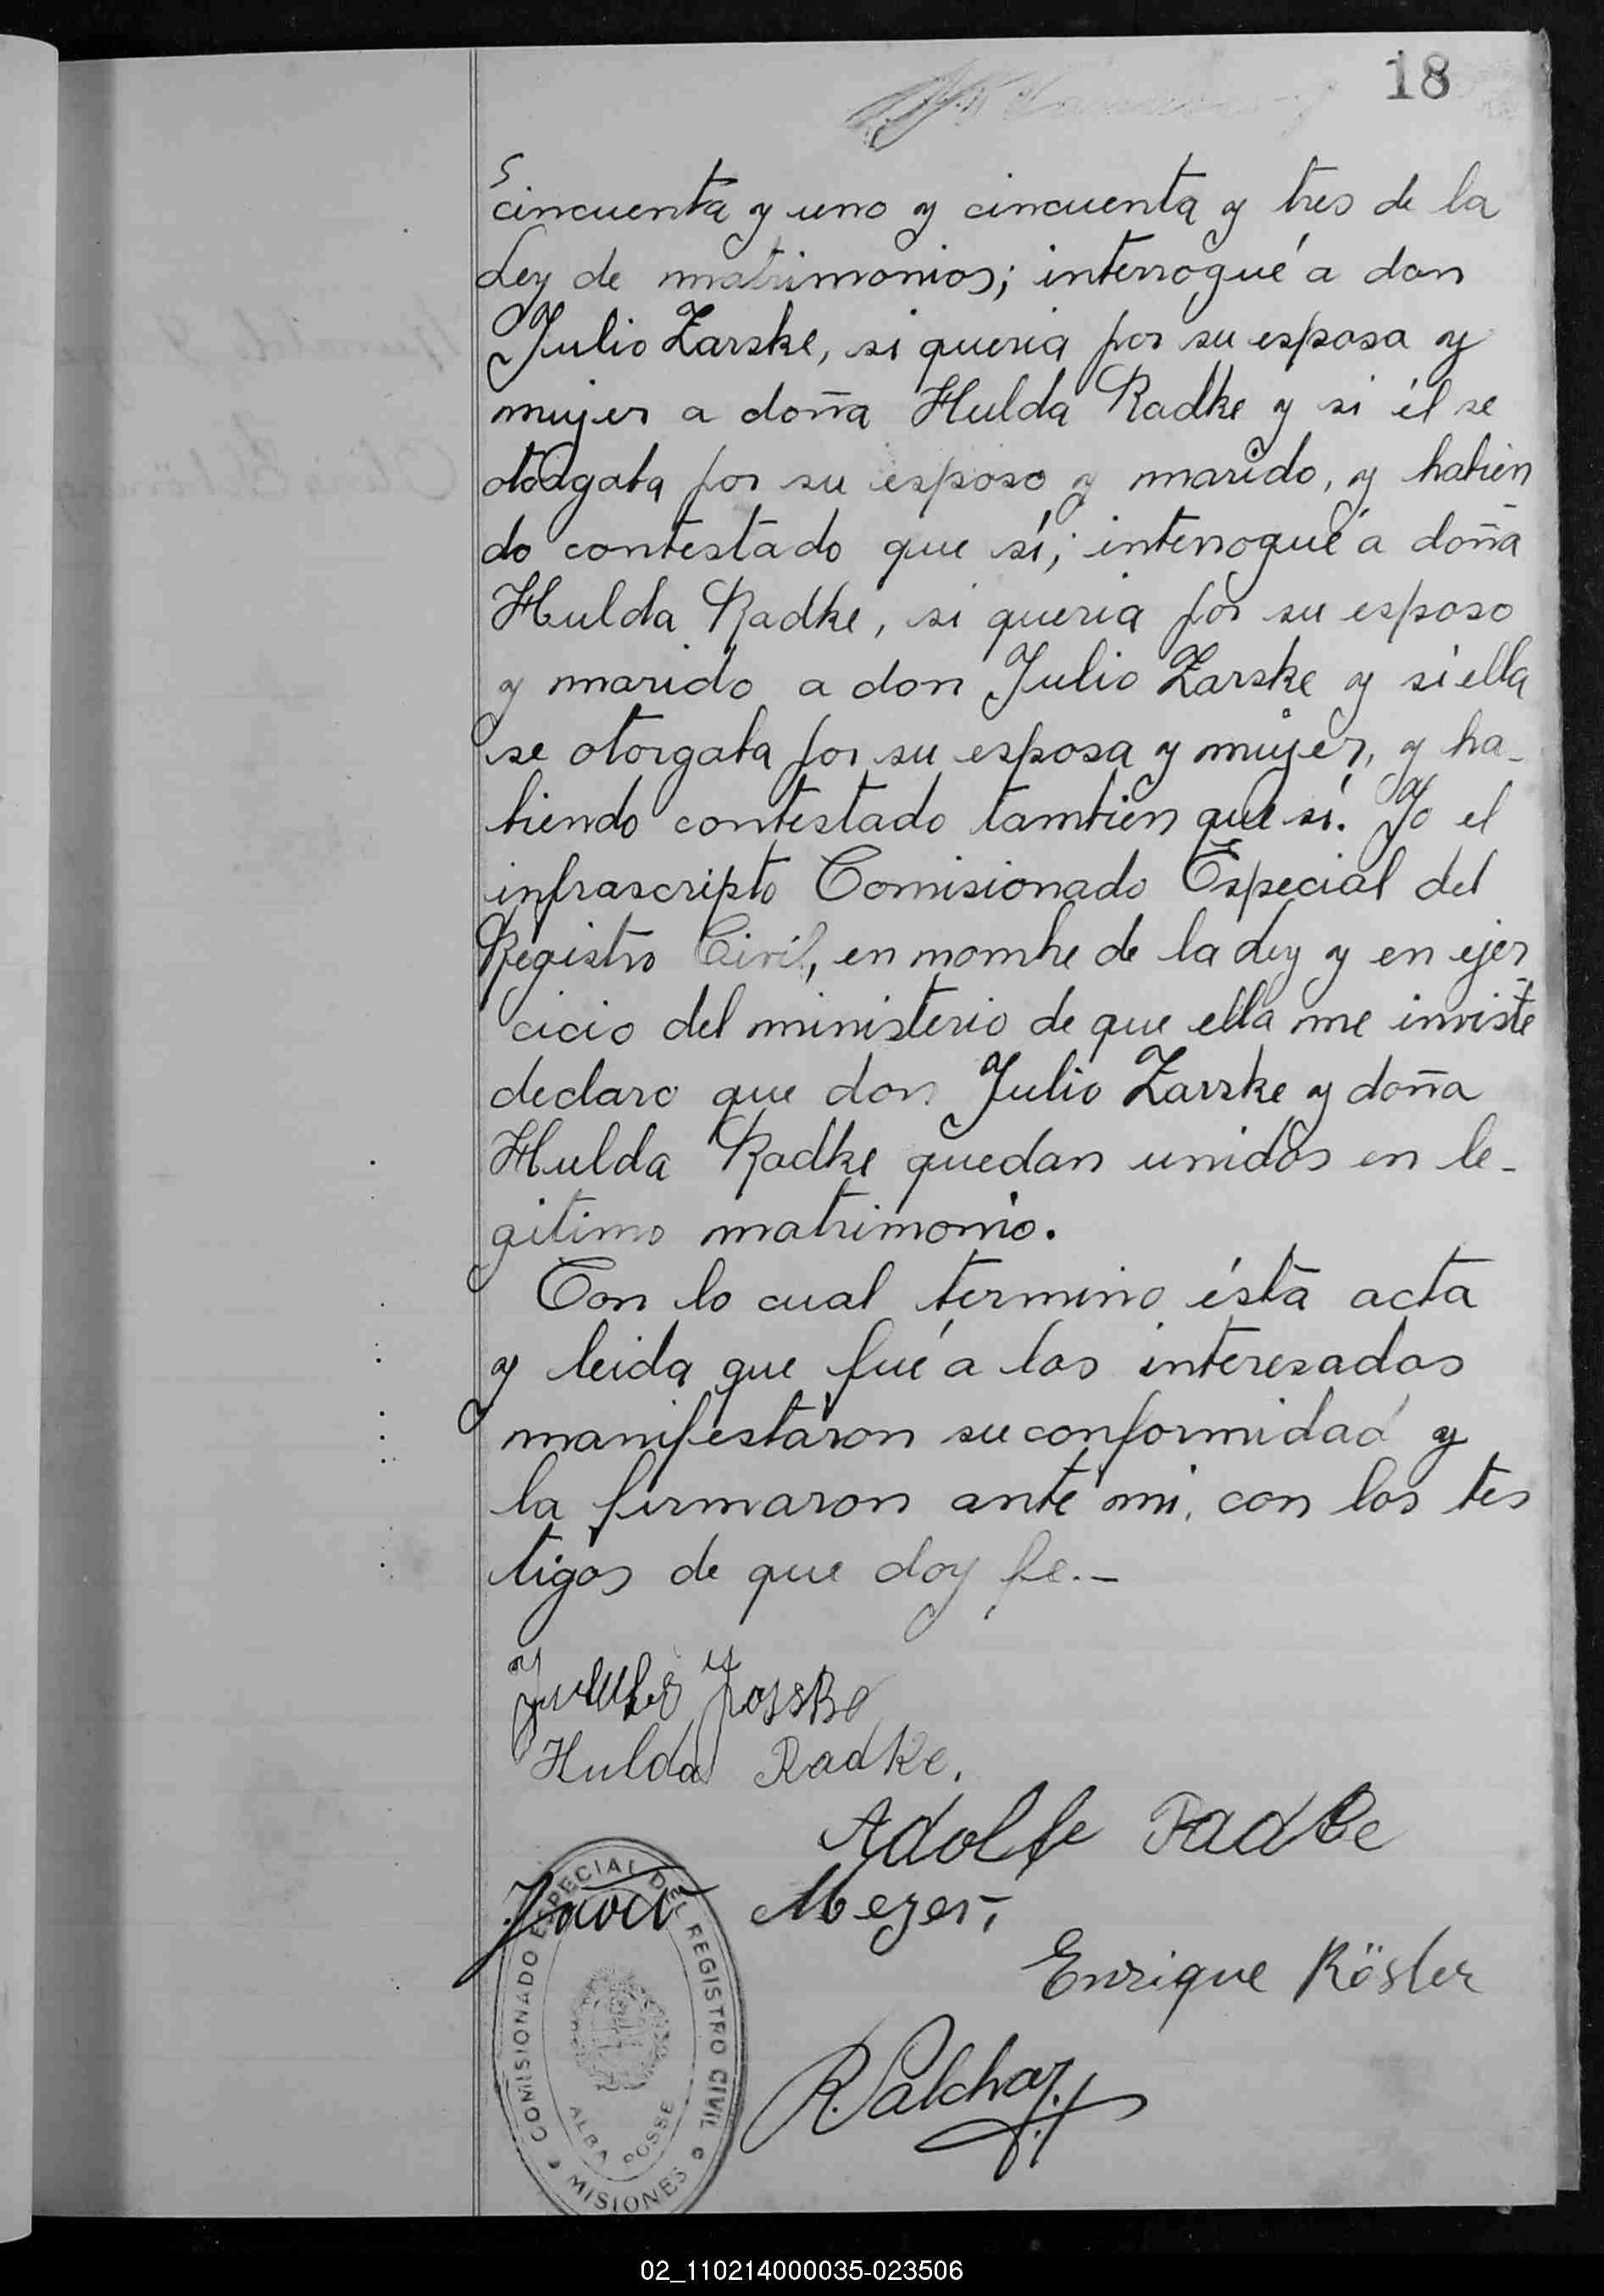 18
cincuenta y uno y cincuenta y tres de la
Ley de matrimonios; interrogué a don
Julio Zarske, si queria por su esposa y
mujer a doña Hulda Radke y si él se
otorgaba por su esposo y marido, y habien
do contestado que sí; interrogué a doña
Hulda Radke, si queria por su esposo
y marido a don Julio Zarske y si ella
se otorgaba por su esposa y mujer, y ha-
biendo contestado tambien que sí. Yo el
infrascripto Comisionado Especial del
Registro Civil, en nombre de la Ley y en ejer
cicio del ministerio de que ella me inviste
declaro que don Julio Zarske y doña
Hulda Radke quedan unidos en le-
gitimo matrimonio.
Con lo cual termino ésta acta
y leida que fué a los interesados
manifestaron su conformidad y
la firmaron ante mi, con los tes
tigos de que doy fe.-
Hulda Radke.
Adolfe Radke
Meyer,
Enrique Rösler
COMISIONADO ESPECIAL DEL REGISTRO CIVIL
ALBA POSSE
MISIONES
02_110214000035-023506